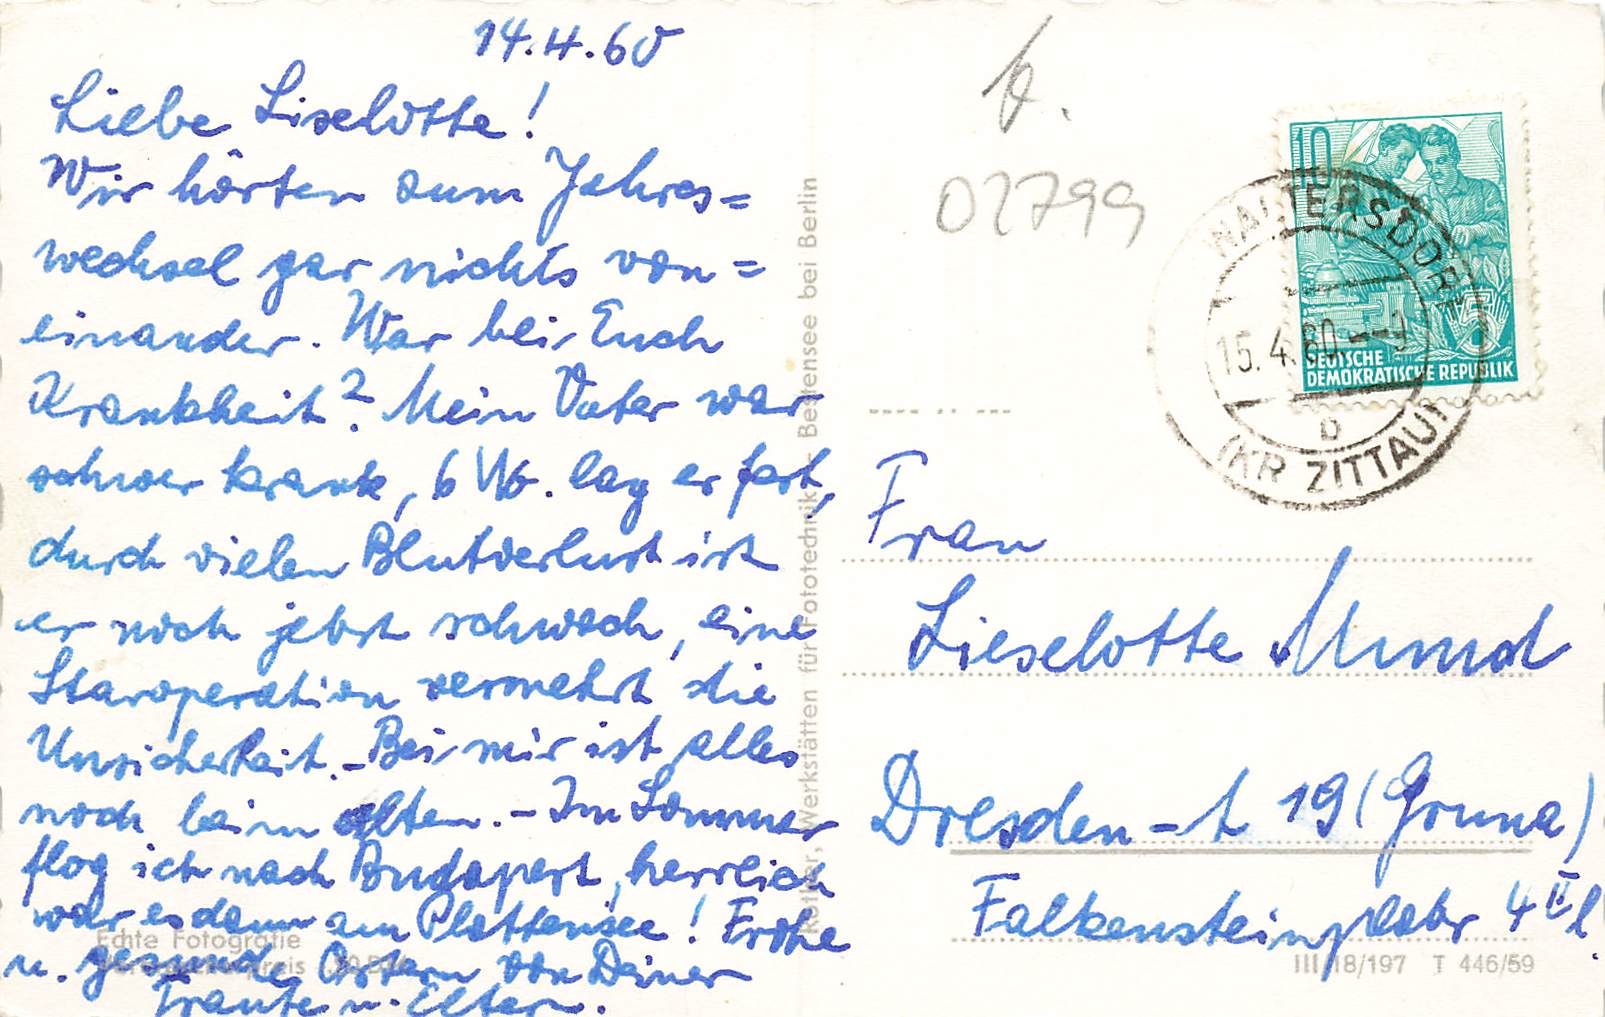 14.4.60
Liebe Liselotte!
Wir hörten zum Jahres=
wechsel gar nichts von=
einander. War bei Euch
Krankheit? Mein Vater war
schwer krank, 6 Wo. lag er fest,
durch vielen Blutverlust ist
er noch jetzt schwach, eine
Staroperation vermehrt die
Unsicherheit. - Bei mir ist alles
noch beim alten. - Im Sommer
flog ich nach Budapest, herrlich
war es dann am Plattensee! Frohe
u. gesunde Ostern von Deiner
Traute u. Eltern.
Echte Fotografie
Rother, Werkstätten für Fototechnik - Bestensee bei Berlin
02799
10
DEUTSCHE
DEMOKRATISCHE REPUBLIK
5
WALTERSDORF
15.4.60--9
b
(KR ZITTAU)
Frau
Lieselotte Mund
Dresden - A 19 (Gruna)
Falkensteinplatz 4 II l.
III/18/197 T 446/59